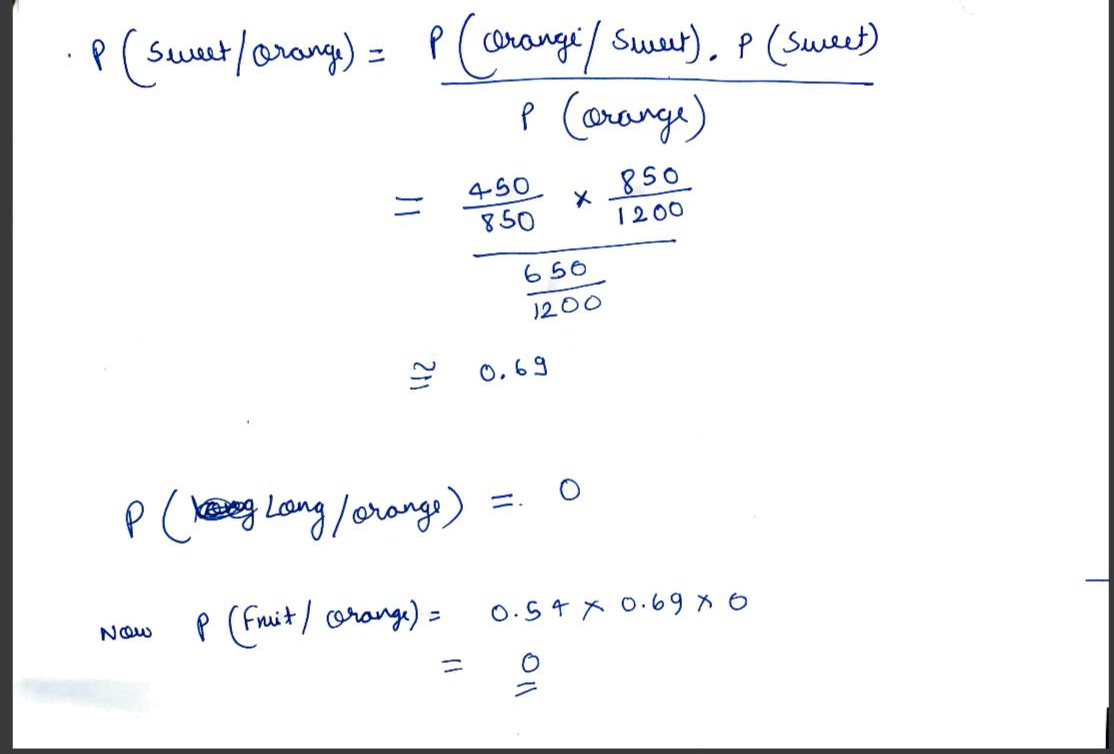 . P (Sweet/orange) = P (orange/Sweet). P (Sweet)
P (orange)
= 450 x 850
850 1200
650
1200
≅ 0.69
P (Long/orange) =. 0
Now P (Fruit/orange) = 0.54 x 0.69 x 0
= 0